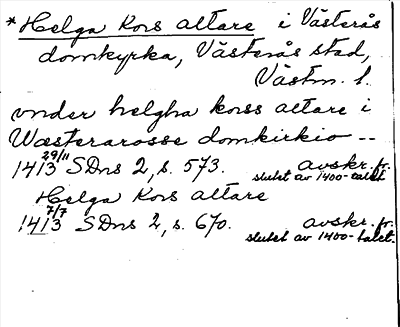 * Helga Kors altare i Västerås
domkyrka, Västerås stad,
Västm. l.
vnder helgha korss altare i
Wæsterarosse domkirkio --
1413 29/11 SDns 2, s. 573. avskr. fr.
slutet av 1400-talet
Helga Kors altare
1413 7/7 SDns 2, s. 670. avskr. fr.
slutet av 1400-talet.